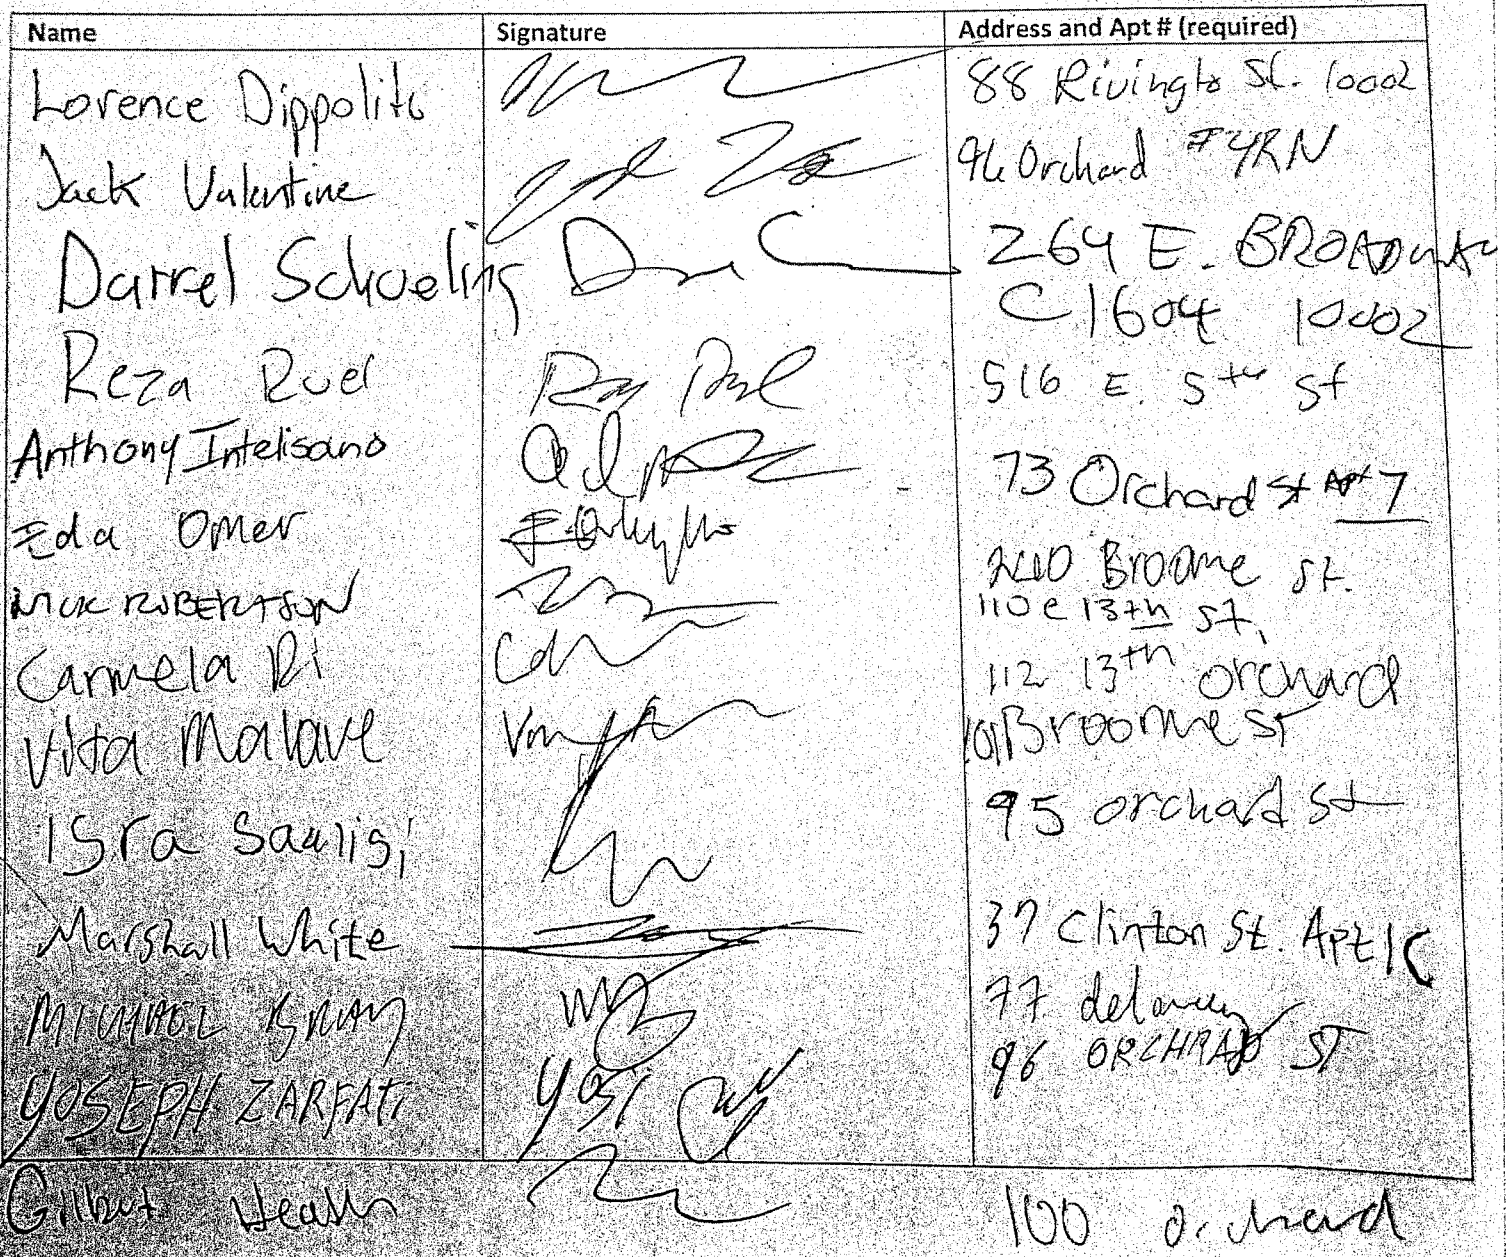 Name Signature Address and Apt # (required)
Lorence Dippolito 88 Rivingto St. 10002
Jack Valentine 96 Orchard #4RN
Darrel Schoeling 264 E. BROADWAY
C1604 10002
Reza Ruel 516 E. 5th St
Anthony Intelisano 73 Orchard St Apt 7
Eda Omer 240 Broome St.
NICK ROBERTSON 110 e 13th St,
Carmela Ri 112 13th orchard
Vita Malave Broome St
Isra 95 orchard St
Marshall White 37 Clinton St. Apt 1C
MICHAEL 77 delancey
YOSEPH ZARFATI Yosi 96 ORCHRAD ST
Gilbert 100 orchard